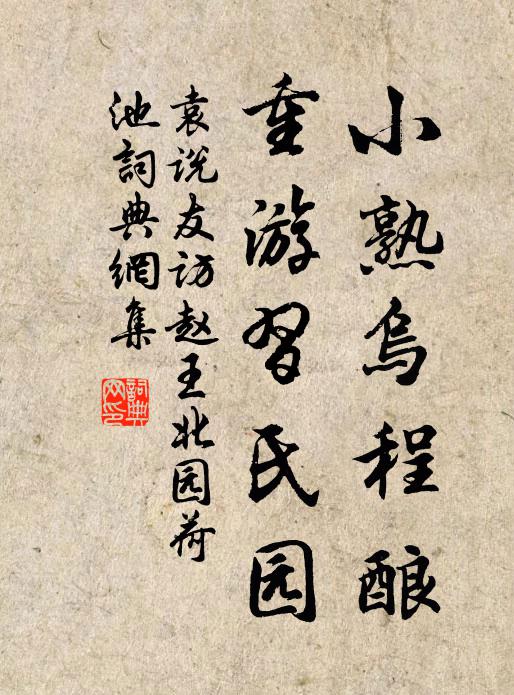 小熟乌程酿
重游习氏园
袁说友访赵王北园荷
池詞典網集
詞典网印